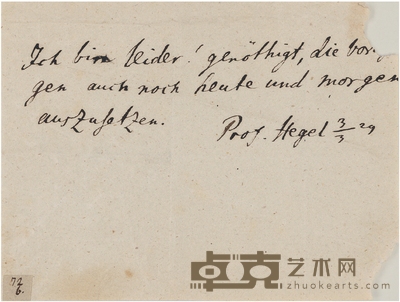 Ich bin leider! genöthigt, die Vor
gen auch noch heute und morgen
auszusetzen.
Prof. Hegel 3/3 29
卓克艺术网
zhuokearts.com